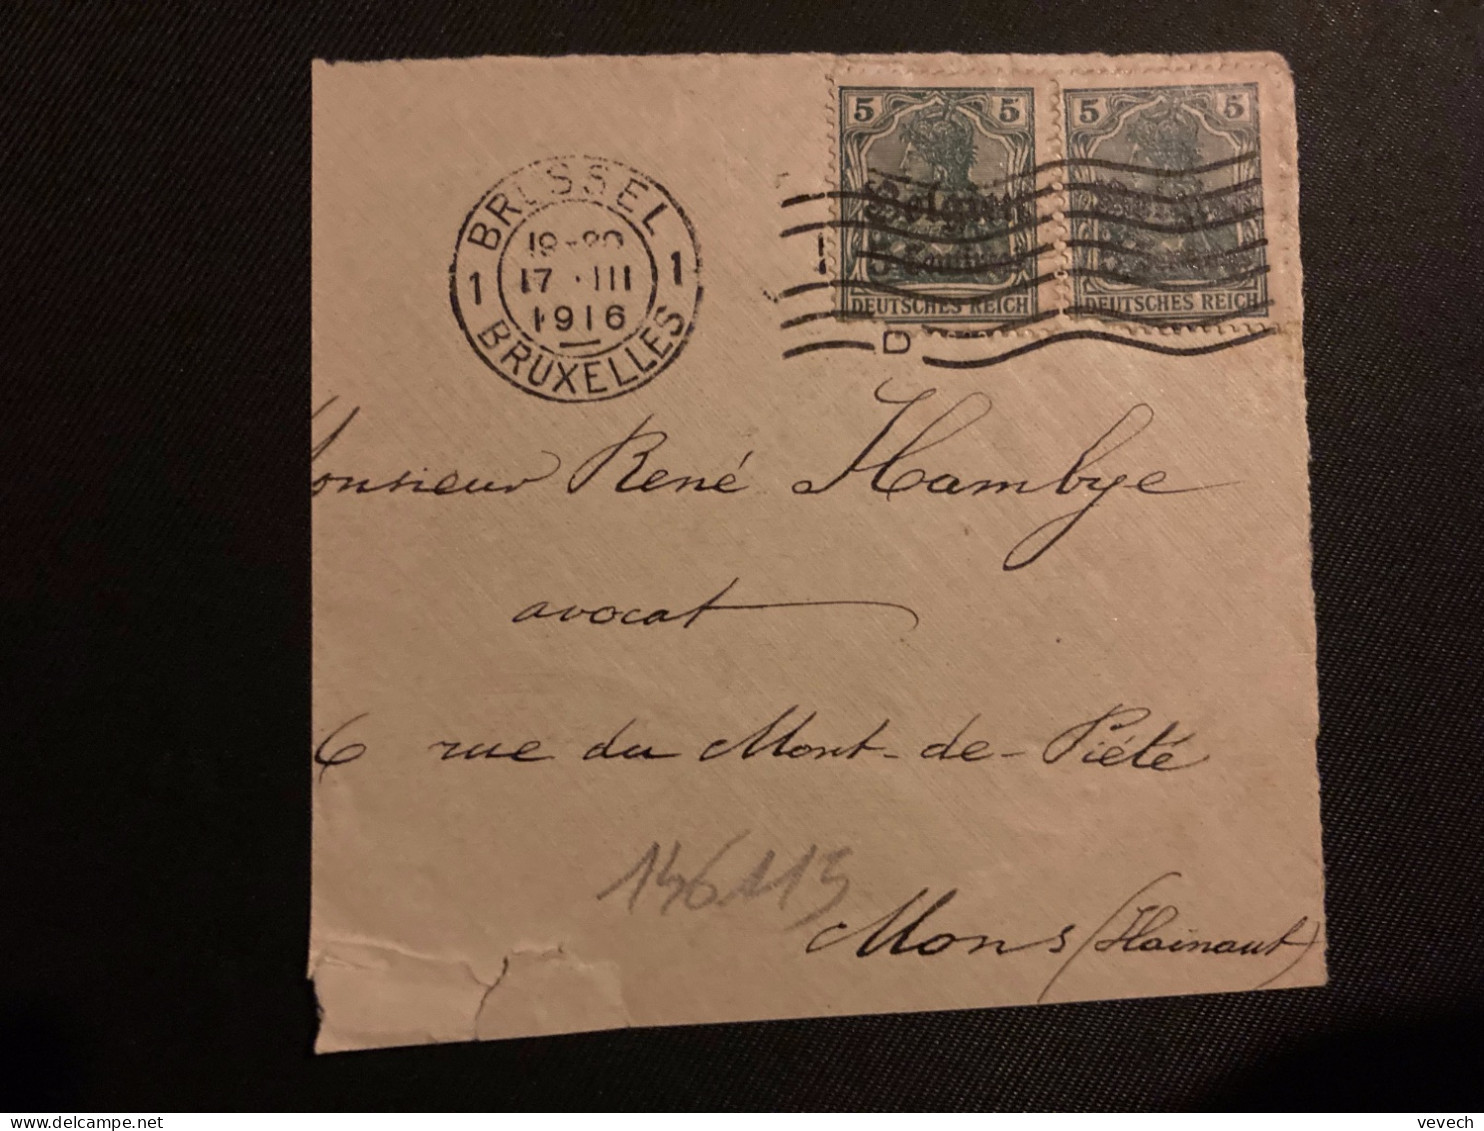 BRUSSEL
1 1
19-20
17 · III
1916
BRUXELLES
5 5
Belgien
5 Centimes
DEUTSCHES REICH
5 5
DEUTSCHES REICH
D
Monsieur René Hambye
avocat
6 rue du Mont-de-Piété
146113
Mons (Hainaut)
vevech